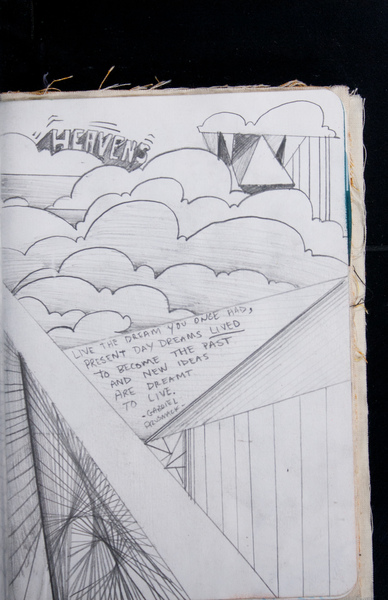 HEAVENS
LIVE THE DREAM YOU ONCE HAD,
PRESENT DAY DREAMS LIVED
TO BECOME THE PAST
AND NEW IDEAS
ARE DREAMT
TO LIVE.
-GABRIEL